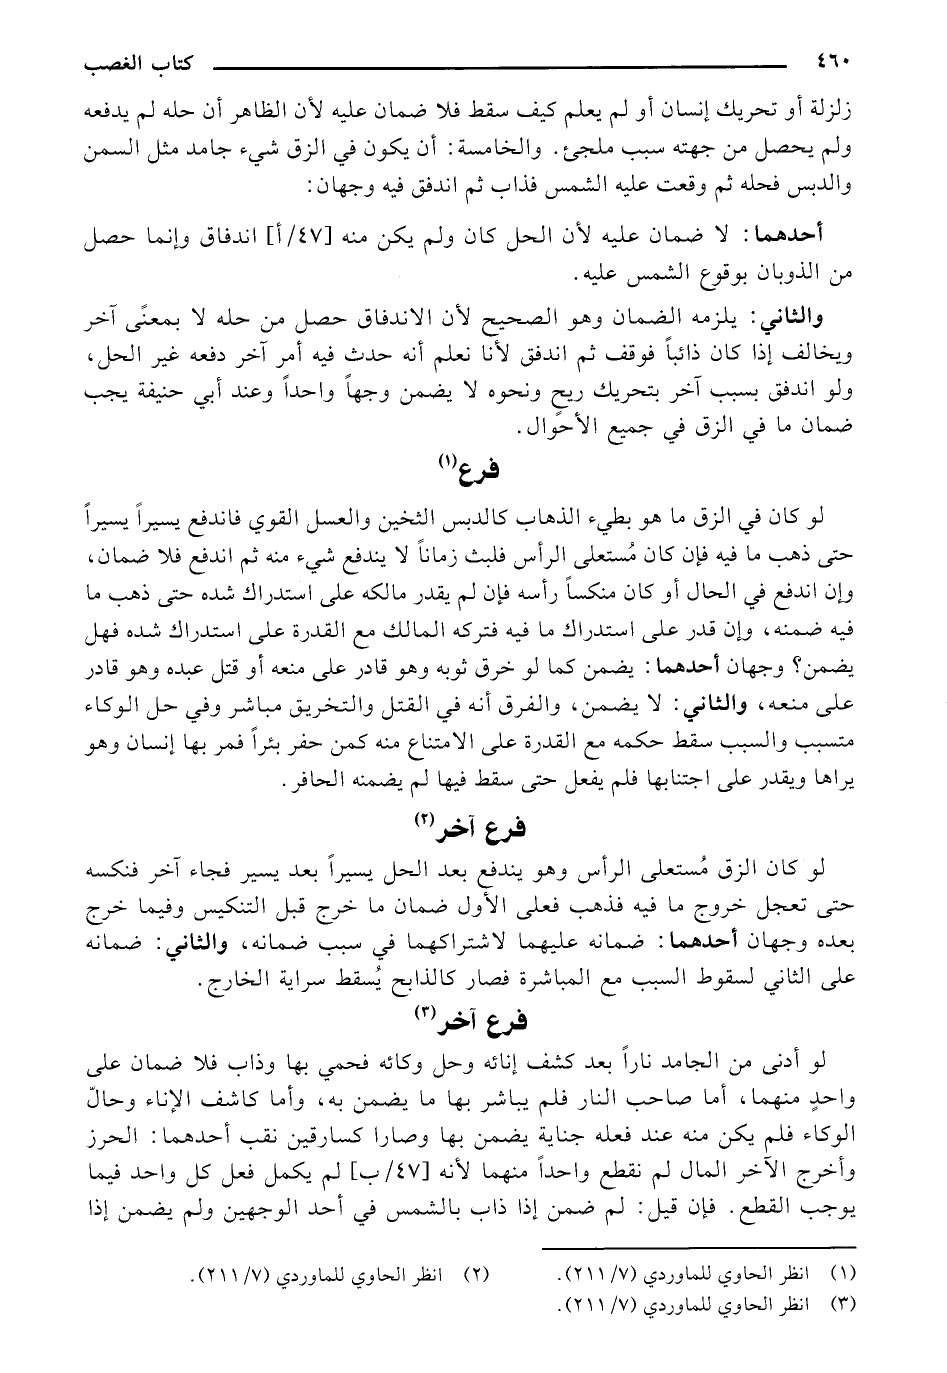 ٤٦٠ كتاب الغصب
زلزلة أو تحريك إنسان أو لم يعلم كيف سقط فلا ضمان عليه لأن الظاهر أن حله لم يدفعه
ولم يحصل من جهته سبب ملجئ. والخامسة: أن يكون في الزق شيء جامد مثل السمن
والدبس فحله ثم وقعت عليه الشمس فذاب ثم اندفق فيه وجهان:
أحدهما: لا ضمان عليه لأن الحل كان ولم يكن منه [٤٧/ أ] اندفاق وإنما حصل
من الذوبان بوقوع الشمس عليه.
والثاني: يلزمه الضمان وهو الصحيح لأن الاندفاق حصل من حله لا بمعنًى آخر
ويخالف إذا كان ذائباً فوقف ثم اندفق لأنا نعلم أنه حدث فيه أمر آخر دفعه غير الحل،
ولو اندفق بسبب آخر بتحريك ريحٍ ونحوه لا يضمن وجهاً واحداً وعند أبي حنيفة يجب
ضمان ما في الزق في جميع الأحوال.
فرع(١)
لو كان في الزق ما هو بطيء الذهاب كالدبس الثخين والعسل القوي فاندفع يسيراً يسيراً
حتى ذهب ما فيه فإن كان مُستعلى الرأس فلبث زماناً لا يندفع شيء منه ثم اندفع فلا ضمان،
وإن اندفع في الحال أو كان منكساً رأسه فإن لم يقدر مالكه على استدراك شده حتى ذهب ما
فيه ضمنه، وإن قدر على استدراك ما فيه فتركه المالك مع القدرة على استدراك شده فهل
يضمن؟ وجهان أحدهما: يضمن كما لو خرق ثوبه وهو قادر على منعه أو قتل عبده وهو قادر
على منعه، والثاني: لا يضمن، والفرق أنه في القتل والتخريق مباشر وفي حل الوكاء
متسبب والسبب سقط حكمه مع القدرة على الامتناع منه كمن حفر بئراً فمر بها إنسان وهو
يراها ويقدر على اجتنابها فلم يفعل حتى سقط فيها لم يضمنه الحافر.
فرع آخر(٢)
لو كان الزق مُستعلى الرأس وهو يندفع بعد الحل يسيراً بعد يسير فجاء آخر فنكسه
حتى تعجل خروج ما فيه فذهب فعلى الأول ضمان ما خرج قبل التنكيس وفيما خرج
بعده وجهان أحدهما: ضمانه عليهما لاشتراكهما في سبب ضمانه، والثاني: ضمانه
على الثاني لسقوط السبب مع المباشرة فصار كالذابح يُسقط سراية الخارج.
فرع آخر(٣)
لو أدنى من الجامد ناراً بعد كشف إنائه وحل وكائه فحمي بها وذاب فلا ضمان على
واحدٍ منهما، أما صاحب النار فلم يباشر بها ما يضمن به، وأما كاشف الإناء وحالّ
الوكاء فلم يكن منه عند فعله جناية يضمن بها وصارا كسارقين نقب أحدهما: الحرز
وأخرج الآخر المال لم نقطع واحداً منهما لأنه [٤٧/ ب] لم يكمل فعل كل واحد فيما
يوجب القطع. فإن قيل: لم ضمن إذا ذاب بالشمس في أحد الوجهين ولم يضمن إذا
(١) انظر الحاوي للماوردي (٧/ ٢١١). (٢) انظر الحاوي للماوردي (٧/ ٢١١).
(٣) انظر الحاوي للماوردي (٧/ ٢١١).